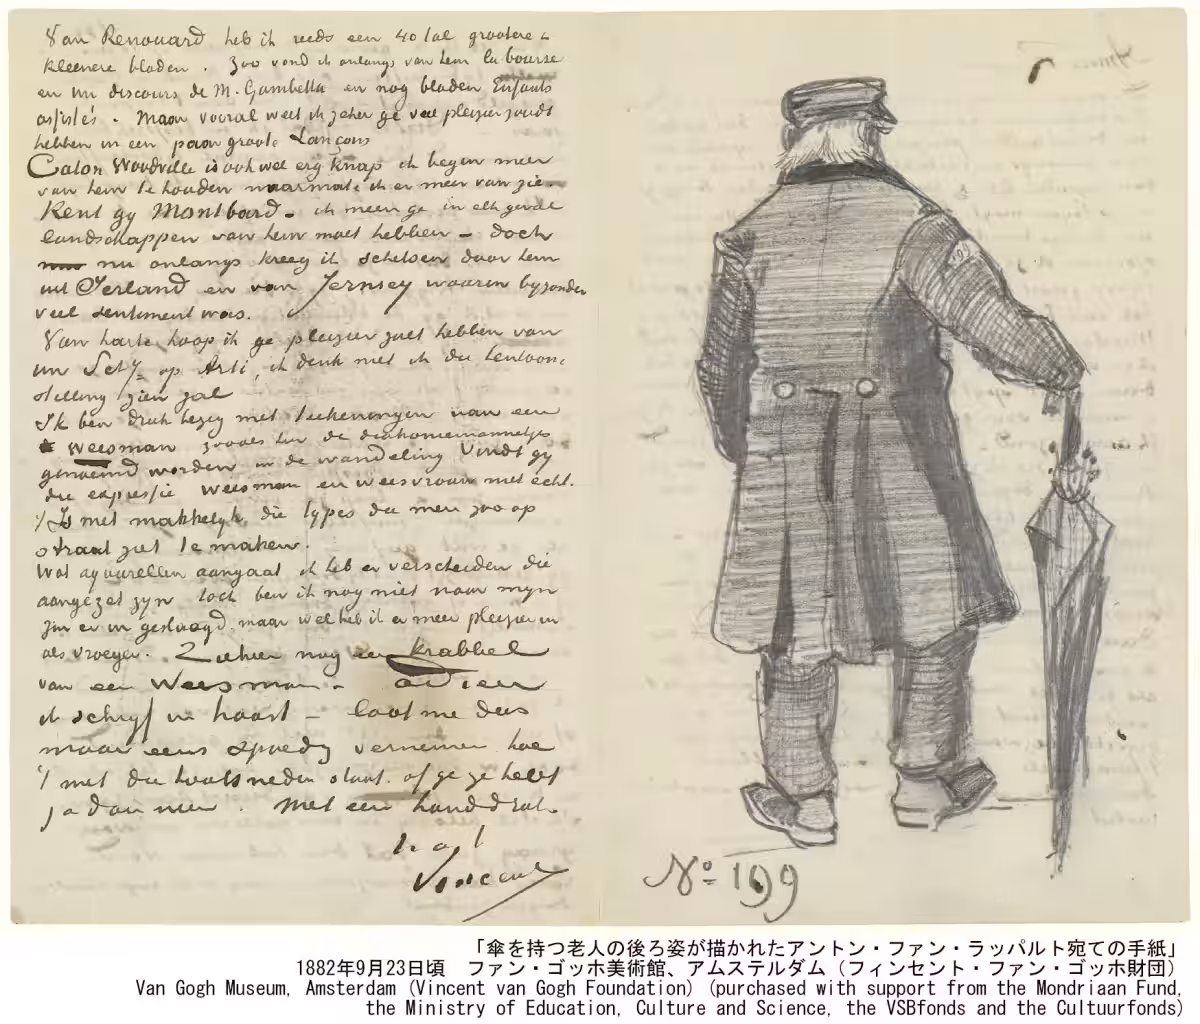 Van Renouard heb ik reeds een 40 tal grootere &
kleinere bladen. Zoo vond ik onlangs van hem la bourse
en un discours de M. Gambetta en nog bladen Enfants
assistés. Maar vooral weet ik zeker ge veel pleizier zoudt
hebben in een paar groote Lançons
Caton Woodville is ook wel erg knap ik begin meer
van hem te houden naarmate ik er meer van zie.
Kent gy Montbard. ik meen ge in elk geval
landschappen van hem moet hebben – doch
nu onlangs kreeg ik schetsen door hem
uit Ierland en van Jernsey waarin byzonder
veel sentiment was.
Van harte hoop ik ge pleizier zult hebben van
uw Schy op Arti, ik denk niet ik die tentoon=
stelling zien zal
Ik ben druk bezig met teekeningen van een
weesman zooals hier de diakoniemannetjes
genoemd worden in de wandeling Vindt gy
die expressie weesman en weesvrouw niet echt.
't Is niet makkelyk, die types die men zoo op
straat ziet te maken.
Wat aquarellen aangaat ik heb er verscheiden die
aangezet zyn toch ben ik nog niet naar myn
zin er in geslaagd, maar wel heb ik er meer pleizier in
als vroeger. Ziehier nog een krabbel
van een Weesman. adieu
ik schryf in haast – laat me dus
maar eens spoedig vernemen hoe
't met die houtsneden staat. of ge ze hebt
ja dan neen. Met een handdruk.
Vincent
199
No 199
「傘を持つ老人の後ろ姿が描かれたアントン・ファン・ラッパルト宛ての手紙」
1882年9月23日頃 ファン・ゴッホ美術館、アムステルダム（フィンセント・ファン・ゴッホ財団）
Van Gogh Museum, Amsterdam (Vincent van Gogh Foundation) (purchased with support from the Mondriaan Fund,
the Ministry of Education, Culture and Science, the VSBfonds and the Cultuurfonds)